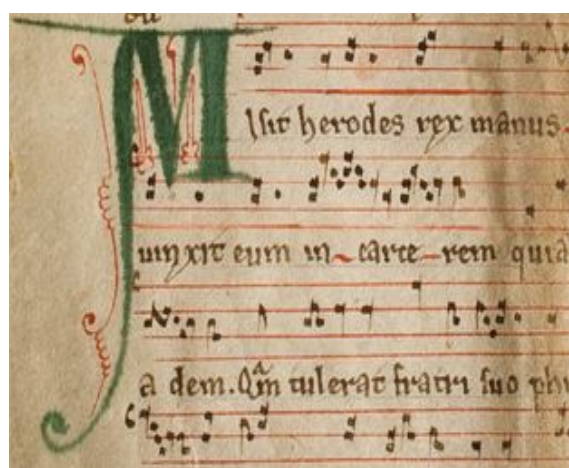 Misit herodes rex manus
uinxit eum in carcerem quia
a dem. Qm tulerat fratri suo